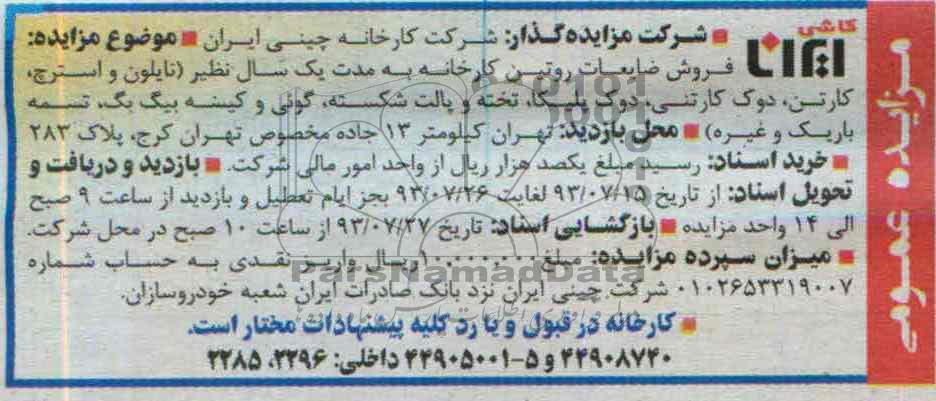 مزایده عمومی
کاشی ایرانا
■ شرکت مزایده‌گذار: شرکت کارخانه چینی ایران ■ موضوع مزایده:
فروش ضایعات روتین کارخانه به مدت یک سال نظیر (نایلون و استرچ،
کارتن، دوک کارتنی، دوک پلیکا، تخته و پالت شکسته، گونی و کیسه بیگ بگ، تسمه
باریک و غیره) ■ محل بازدید: تهران کیلومتر ۱۳ جاده مخصوص تهران کرج، پلاک ۲۸۳
■ خرید اسناد: رسید مبلغ یکصد هزار ریال از واحد امور مالی شرکت. ■ بازدید و دریافت و
تحویل اسناد: از تاریخ ۹۳/۰۷/۱۵ لغایت ۹۳/۰۷/۲۶ بجز ایام تعطیل و بازدید از ساعت ۹ صبح
الی ۱۴ واحد مزایده ■ بازگشایی اسناد: تاریخ ۹۳/۰۷/۲۷ از ساعت ۱۰ صبح در محل شرکت.
■ میزان سپرده مزایده: مبلغ ریال واریز نقدی به حساب شماره
۰۱۰۲۶۵۳۳۱۹۰۰۷ شرکت چینی ایران نزد بانک صادرات ایران شعبه خودروسازان.
■ کارخانه در قبول و یا رد کلیه پیشنهادات مختار است.
۴۴۹۰۸۷۴۰ و ۵-۴۴۹۰۵۰۰۱ داخلی: ۲۲۹۶، ۲۲۸۵
ParsNamadData